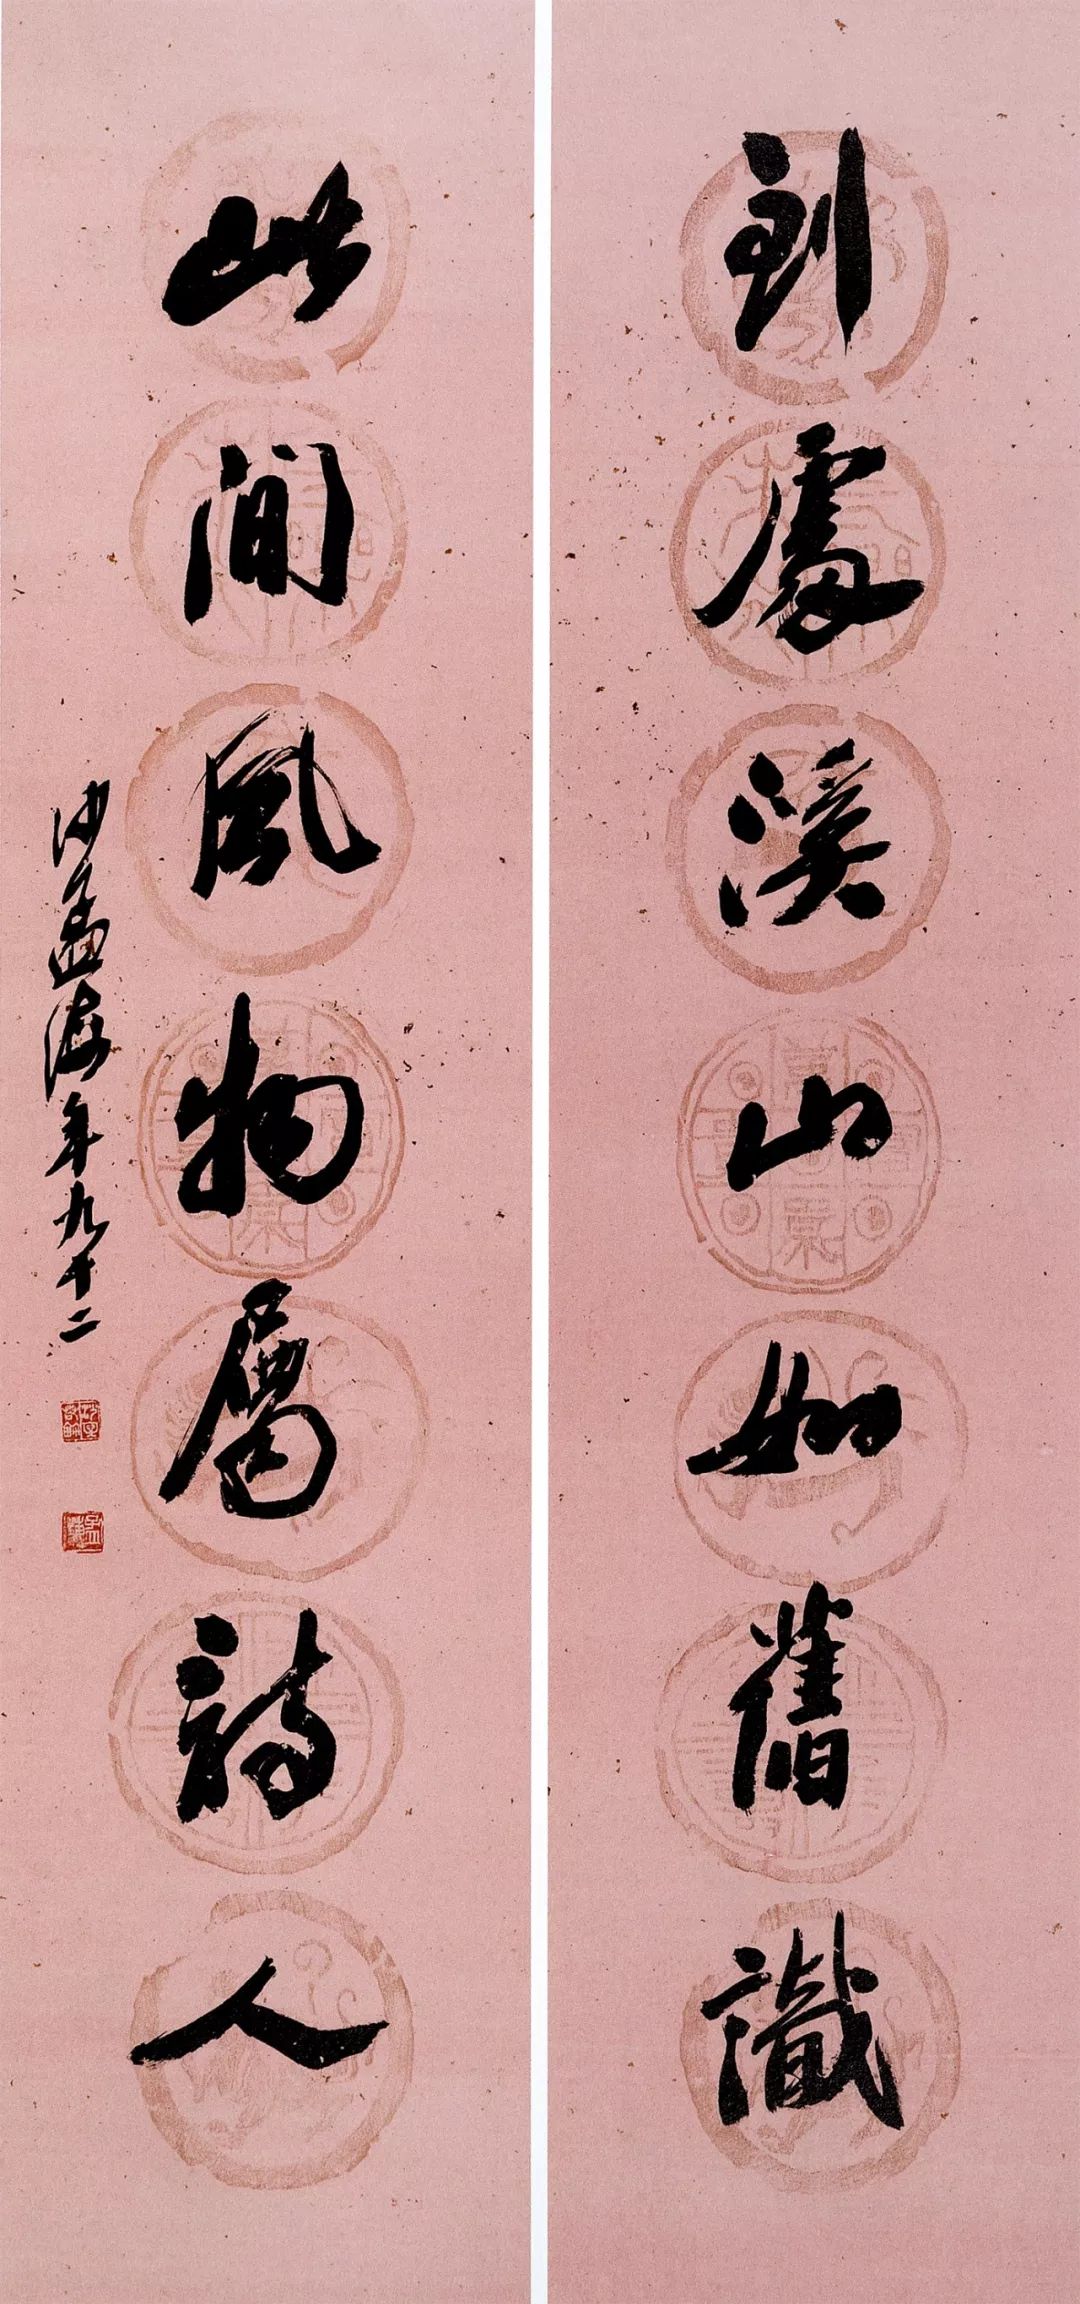 到處溪山如舊識
此間風物屬詩人
沙孟海年九十二
孟海